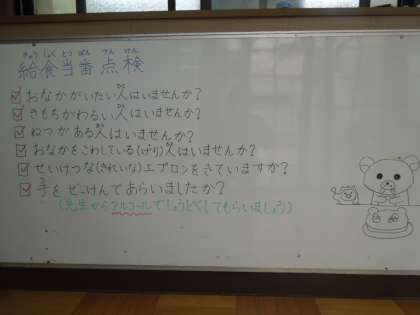 きゅうしょくとうばんてんけん
給食当番点検
☑おなかがいたい人はいませんか?
☑きもちがわるい人はいませんか?
☑ねつがある人はいませんか?
☑おなかをこわしている(げり)人はいませんか?
☑せいけつな(きれいな)エプロンをきていますか?
☑手をせっけんであらいましたか?
(先生からアルコールでしょうどくしてもらいましょう)